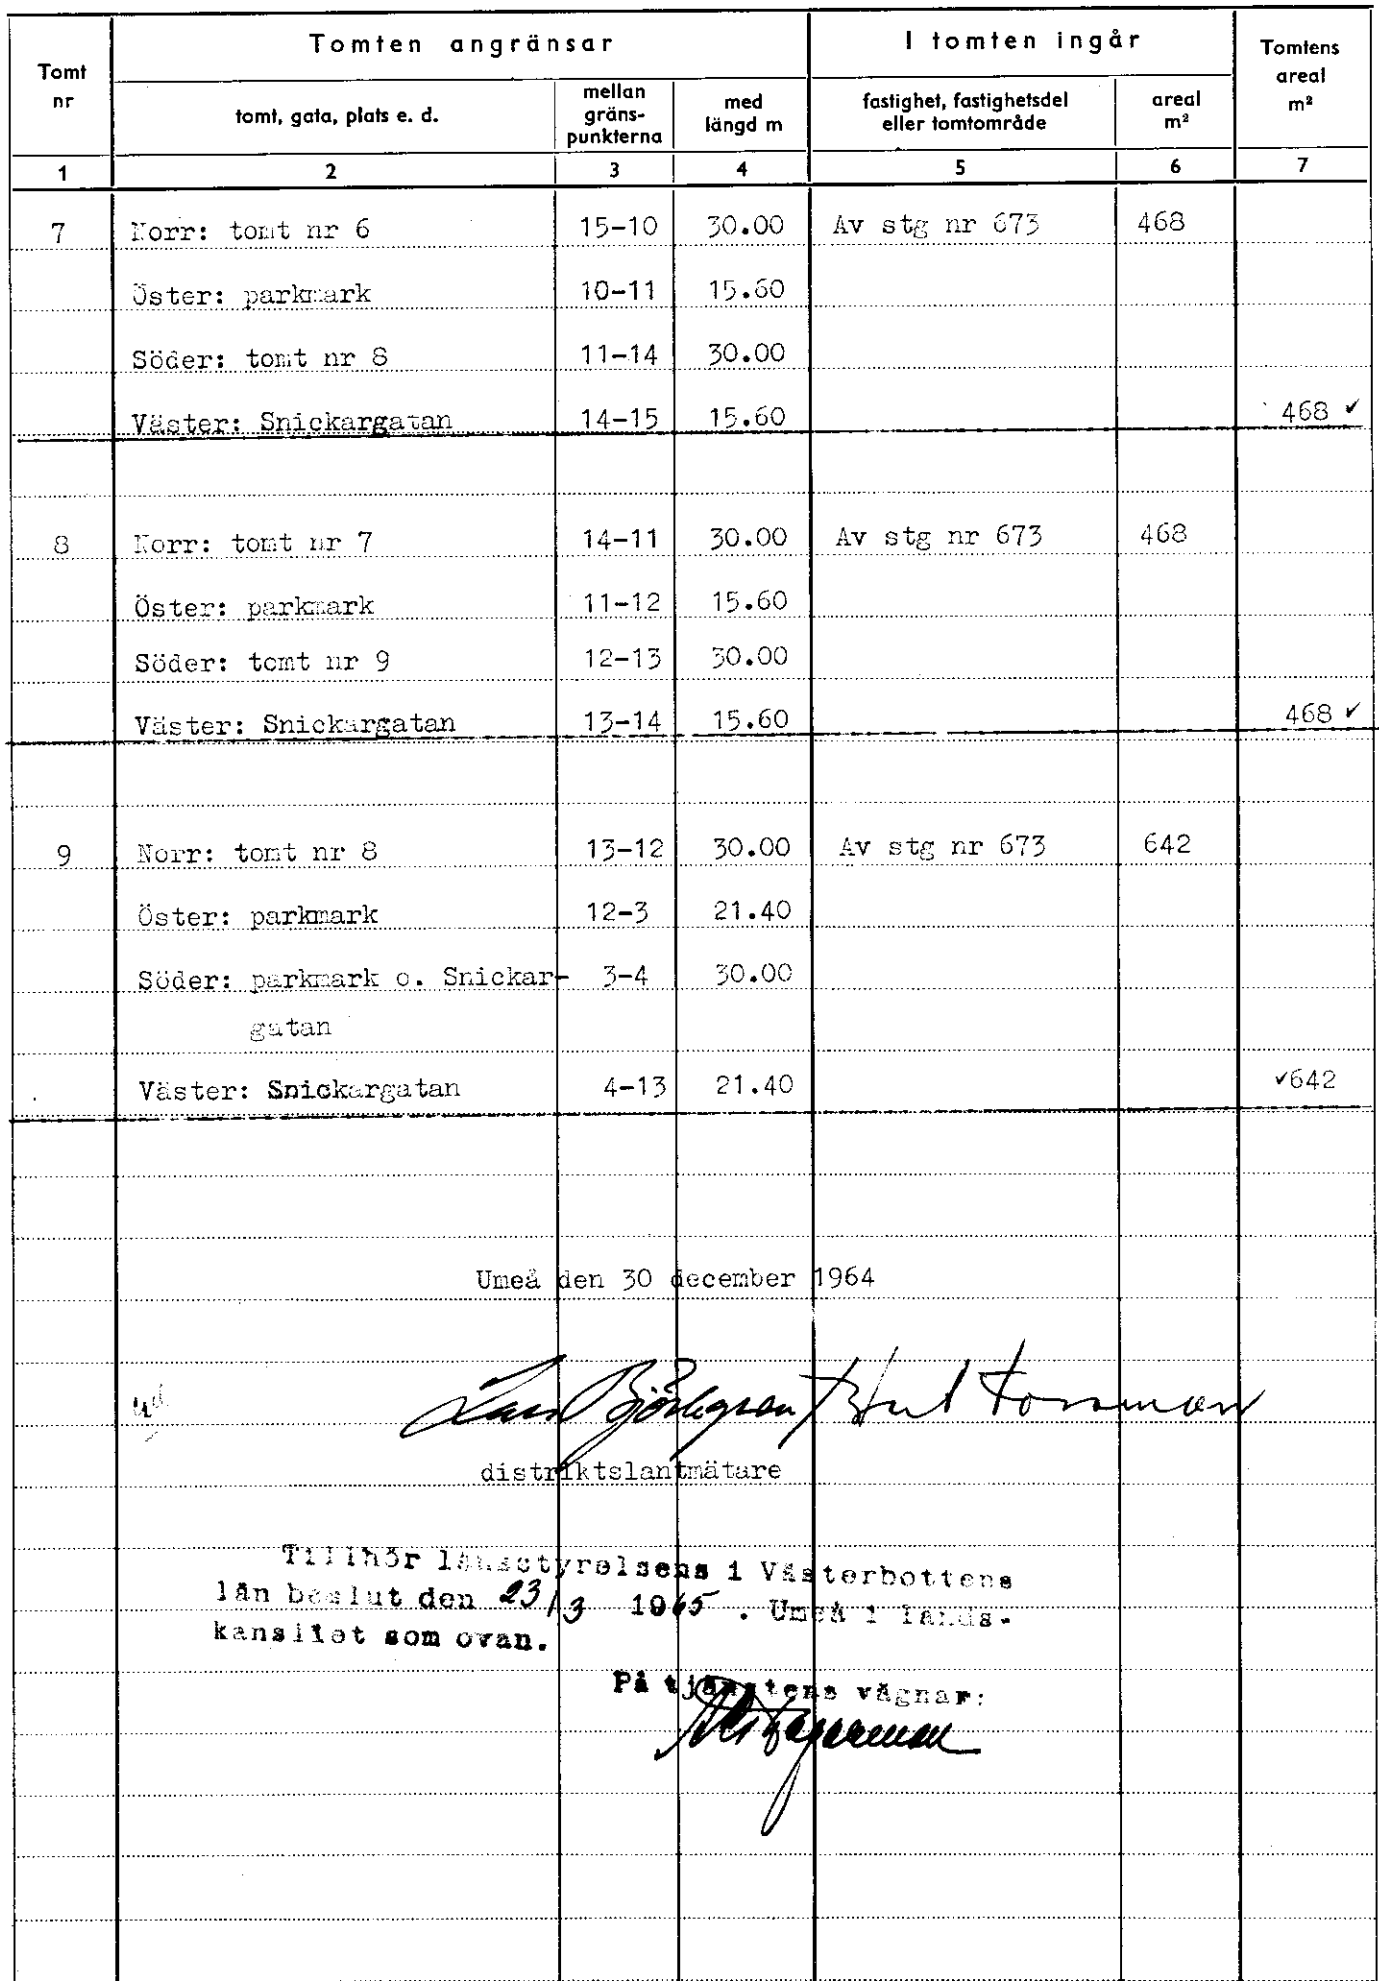 Tomt nr | Tomten angränsar | I tomten ingår | Tomtens areal m²
tomt, gata, plats e. d. | mellan gräns-punkterna | med längd m | fastighet, fastighetsdel eller tomtområde | areal m²
1 | 2 | 3 | 4 | 5 | 6 | 7
7 Norr: tomt nr 6 15-10 30.00 Av stg nr 673 468
Öster: parkmark 10-11 15.60
Söder: tomt nr 8 11-14 30.00
Väster: Snickargatan 14-15 15.60 468 ✓
8 Norr: tomt nr 7 14-11 30.00 Av stg nr 673 468
Öster: parkmark 11-12 15.60
Söder: tomt nr 9 12-13 30.00
Väster: Snickargatan 13-14 15.60 468 ✓
9 Norr: tomt nr 8 13-12 30.00 Av stg nr 673 642
Öster: parkmark 12-3 21.40
Söder: parkmark o. Snickar- 3-4 30.00
gatan
Väster: Snickargatan 4-13 21.40 ✓642
Umeå den 30 december 1964
distriktslantmätare
Tillhör länsstyrelsens i Västerbottens
län beslut den 23/3 1965. Umeå i lands-
kansliet som ovan.
På tjänstens vägnar: